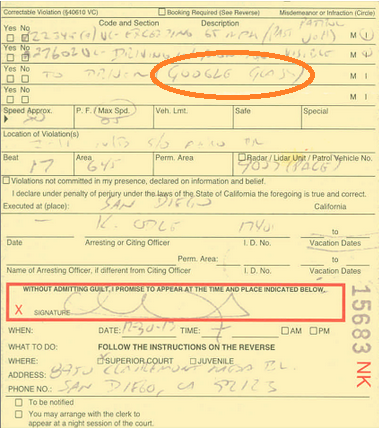 Correctable Violation (§40610 VC) ☐ Booking Required (See Reverse) Misdemeanor or Infraction (Circle)
Yes No Code and Section Description PATROL
22349(a) VC - EXCEEDING 65 MPH (
Yes No 27602 VC - DRIVING VISIBLE M
Yes No TO DRIVER (GOOGLE GLASS) M I
Yes No M I
Speed Approx. P. F. / Max Spd. Veh. Lmt. Safe Special
65
Location of Violation(s)
Beat Area Perm. Area ☐ Radar / Lidar Unit / Patrol Vehicle No.
17 645 (PACE)
☐ Violations not committed in my presence, declared on information and belief.
I declare under penalty of perjury under the laws of the State of California the foregoing is true and correct.
Executed at (place): SAN DIEGO California
K. ODLE to
Date Arresting or Citing Officer I. D. No. Vacation Dates
Perm. Area: to
Name of Arresting Officer, if different from Citing Officer I. D. No. Vacation Dates
WITHOUT ADMITTING GUILT, I PROMISE TO APPEAR AT THE TIME AND PLACE INDICATED BELOW.
X SIGNATURE
WHEN: DATE: TIME: ☐ AM ☐ PM
WHAT TO DO: FOLLOW THE INSTRUCTIONS ON THE REVERSE
WHERE: ☐ SUPERIOR COURT ☐ JUVENILE
ADDRESS: 8950 CLAIREMONT MESA BL.
PHONE NO.: SAN DIEGO, CA 92123
☐ To be notified
☐ You may arrange with the clerk to
appear at a night session of the court.
15683 NK